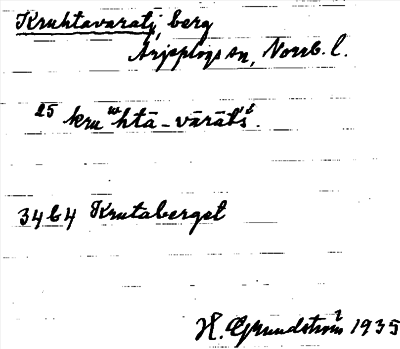 Kruhtavaratj, berg
Arjeplogs sn, Norrb. l.
25 kruʷhtā-vārāts´t.
34 b 4 Krutaberget
H. Grundström 1935